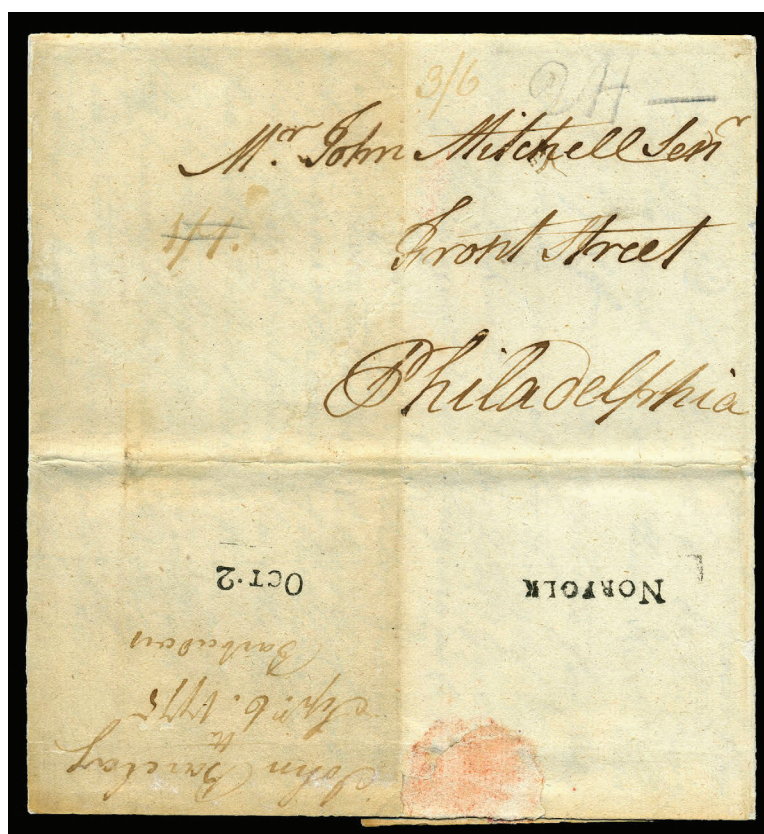 3/6 2H —
Mr. John Mitchell Senr
1/4
Front Street
Philadelphia
NORFOLK
OCT·2
John Barclay
Sepr. 6th. 1775
Barbadoes